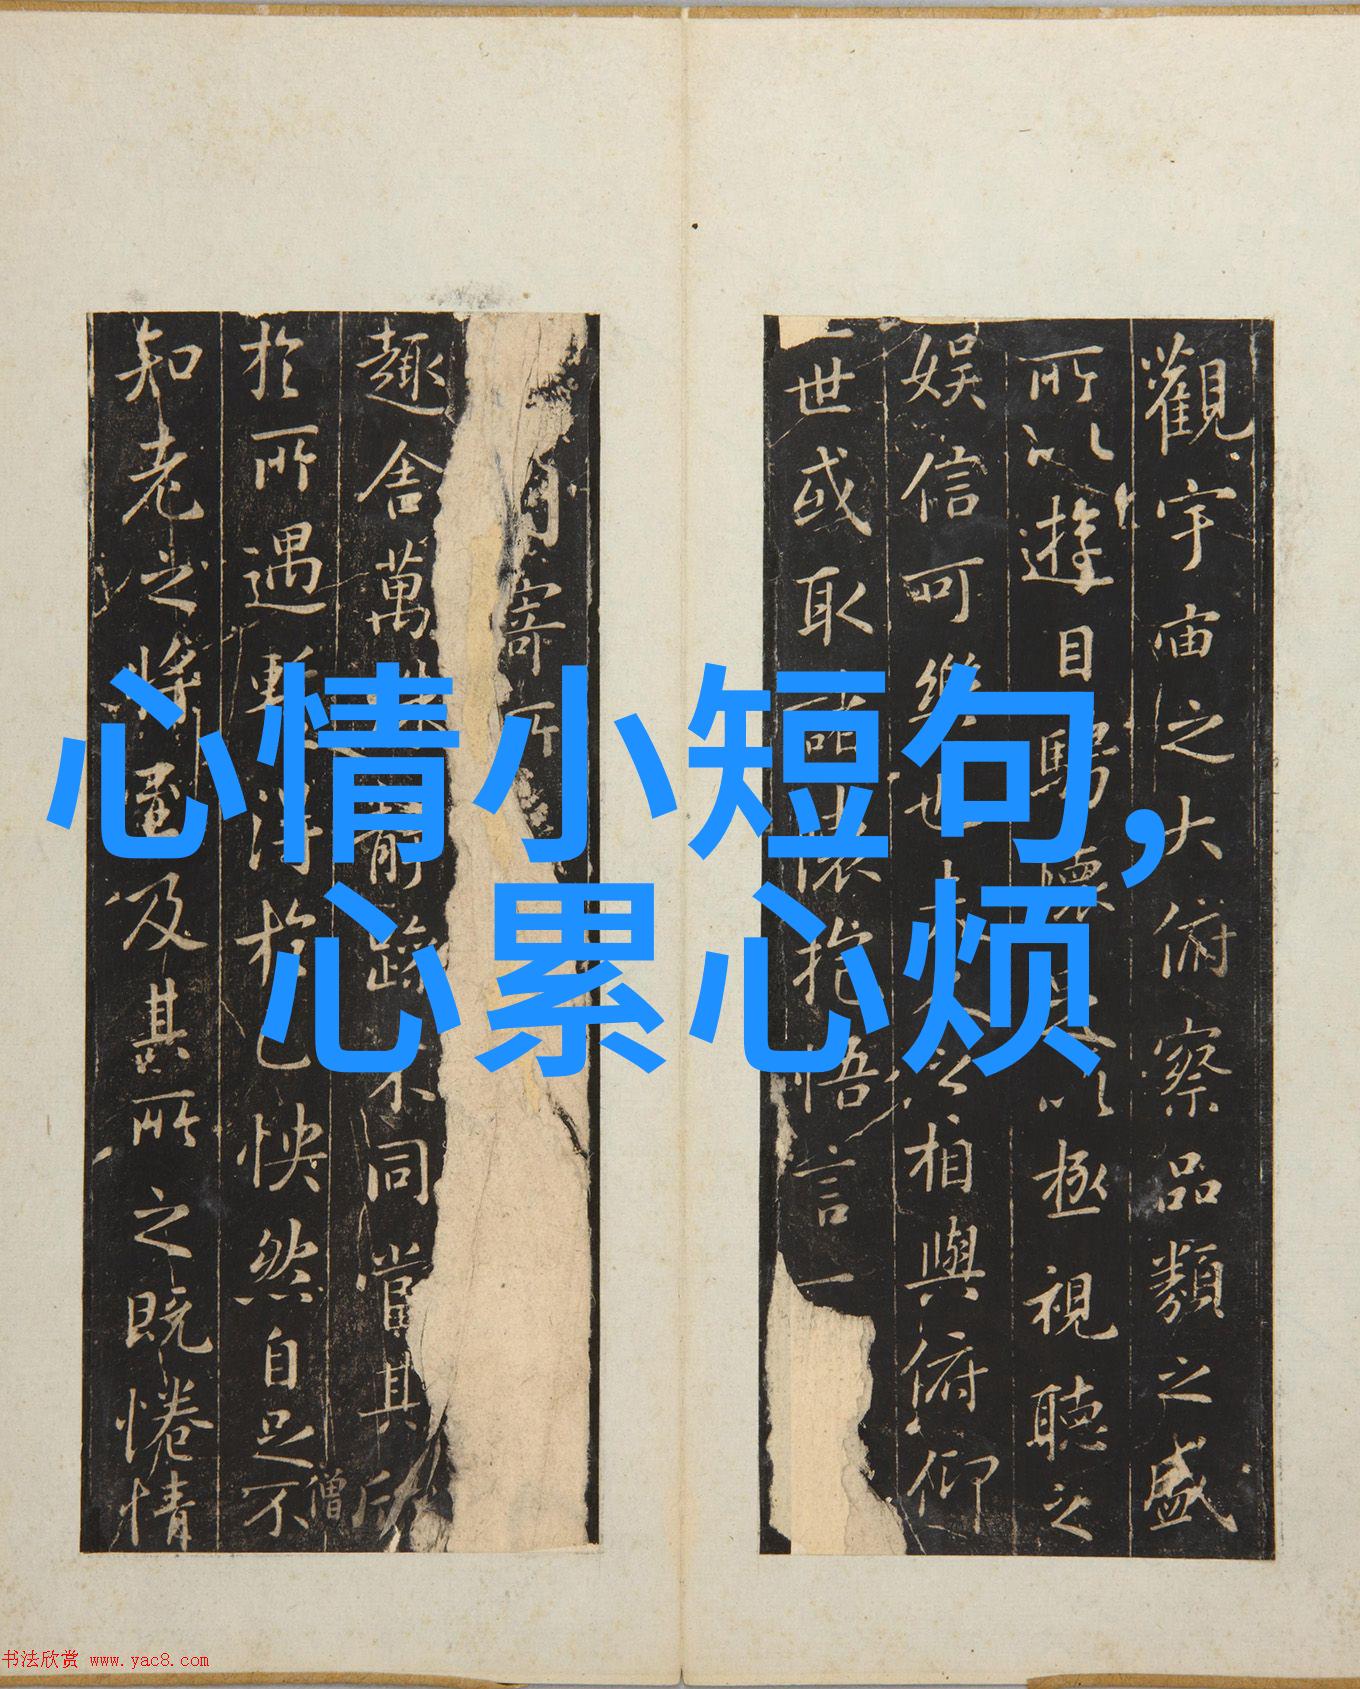 心情小短句，
心累心烦
觀宇宙之大俯察品類之盛
所以遊目騁懷足以極視聽之
娛信可樂也夫人之相與俯仰
一世或取諸懷抱悟言一
寄所
趣舍萬殊静躁不同當其欣
僧
於所遇暫得於己怏然自足不
知老之將至及其所之既惓情
书法欣赏 www.yac8.com